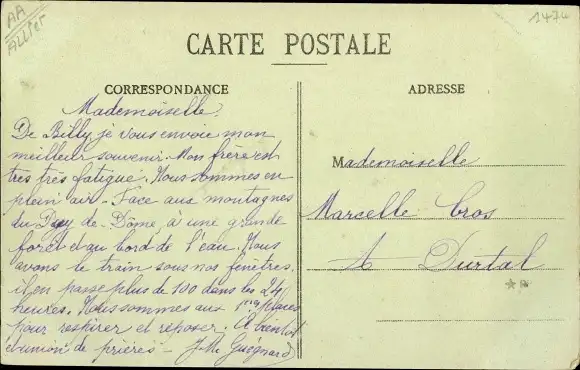 AA
Allier
1474
CARTE POSTALE
CORRESPONDANCE
Mademoiselle,
De Billy, je vous envoie mon
meilleur souvenir. Mon frère est
très très fatigué. Nous sommes en
plein air - Face aux montagnes
du Puy de Dôme, à une grande
forêt et au bord de l'eau. Nous
avons le train sous nos fenêtres,
il en passe plus de 100 dans les 24
heures. Nous sommes aux 1res places
pour respirer et reposer. A bientôt
et union de prières - J.M. Guégnard
ADRESSE
Mademoiselle
Marcelle Cros
A Durtal